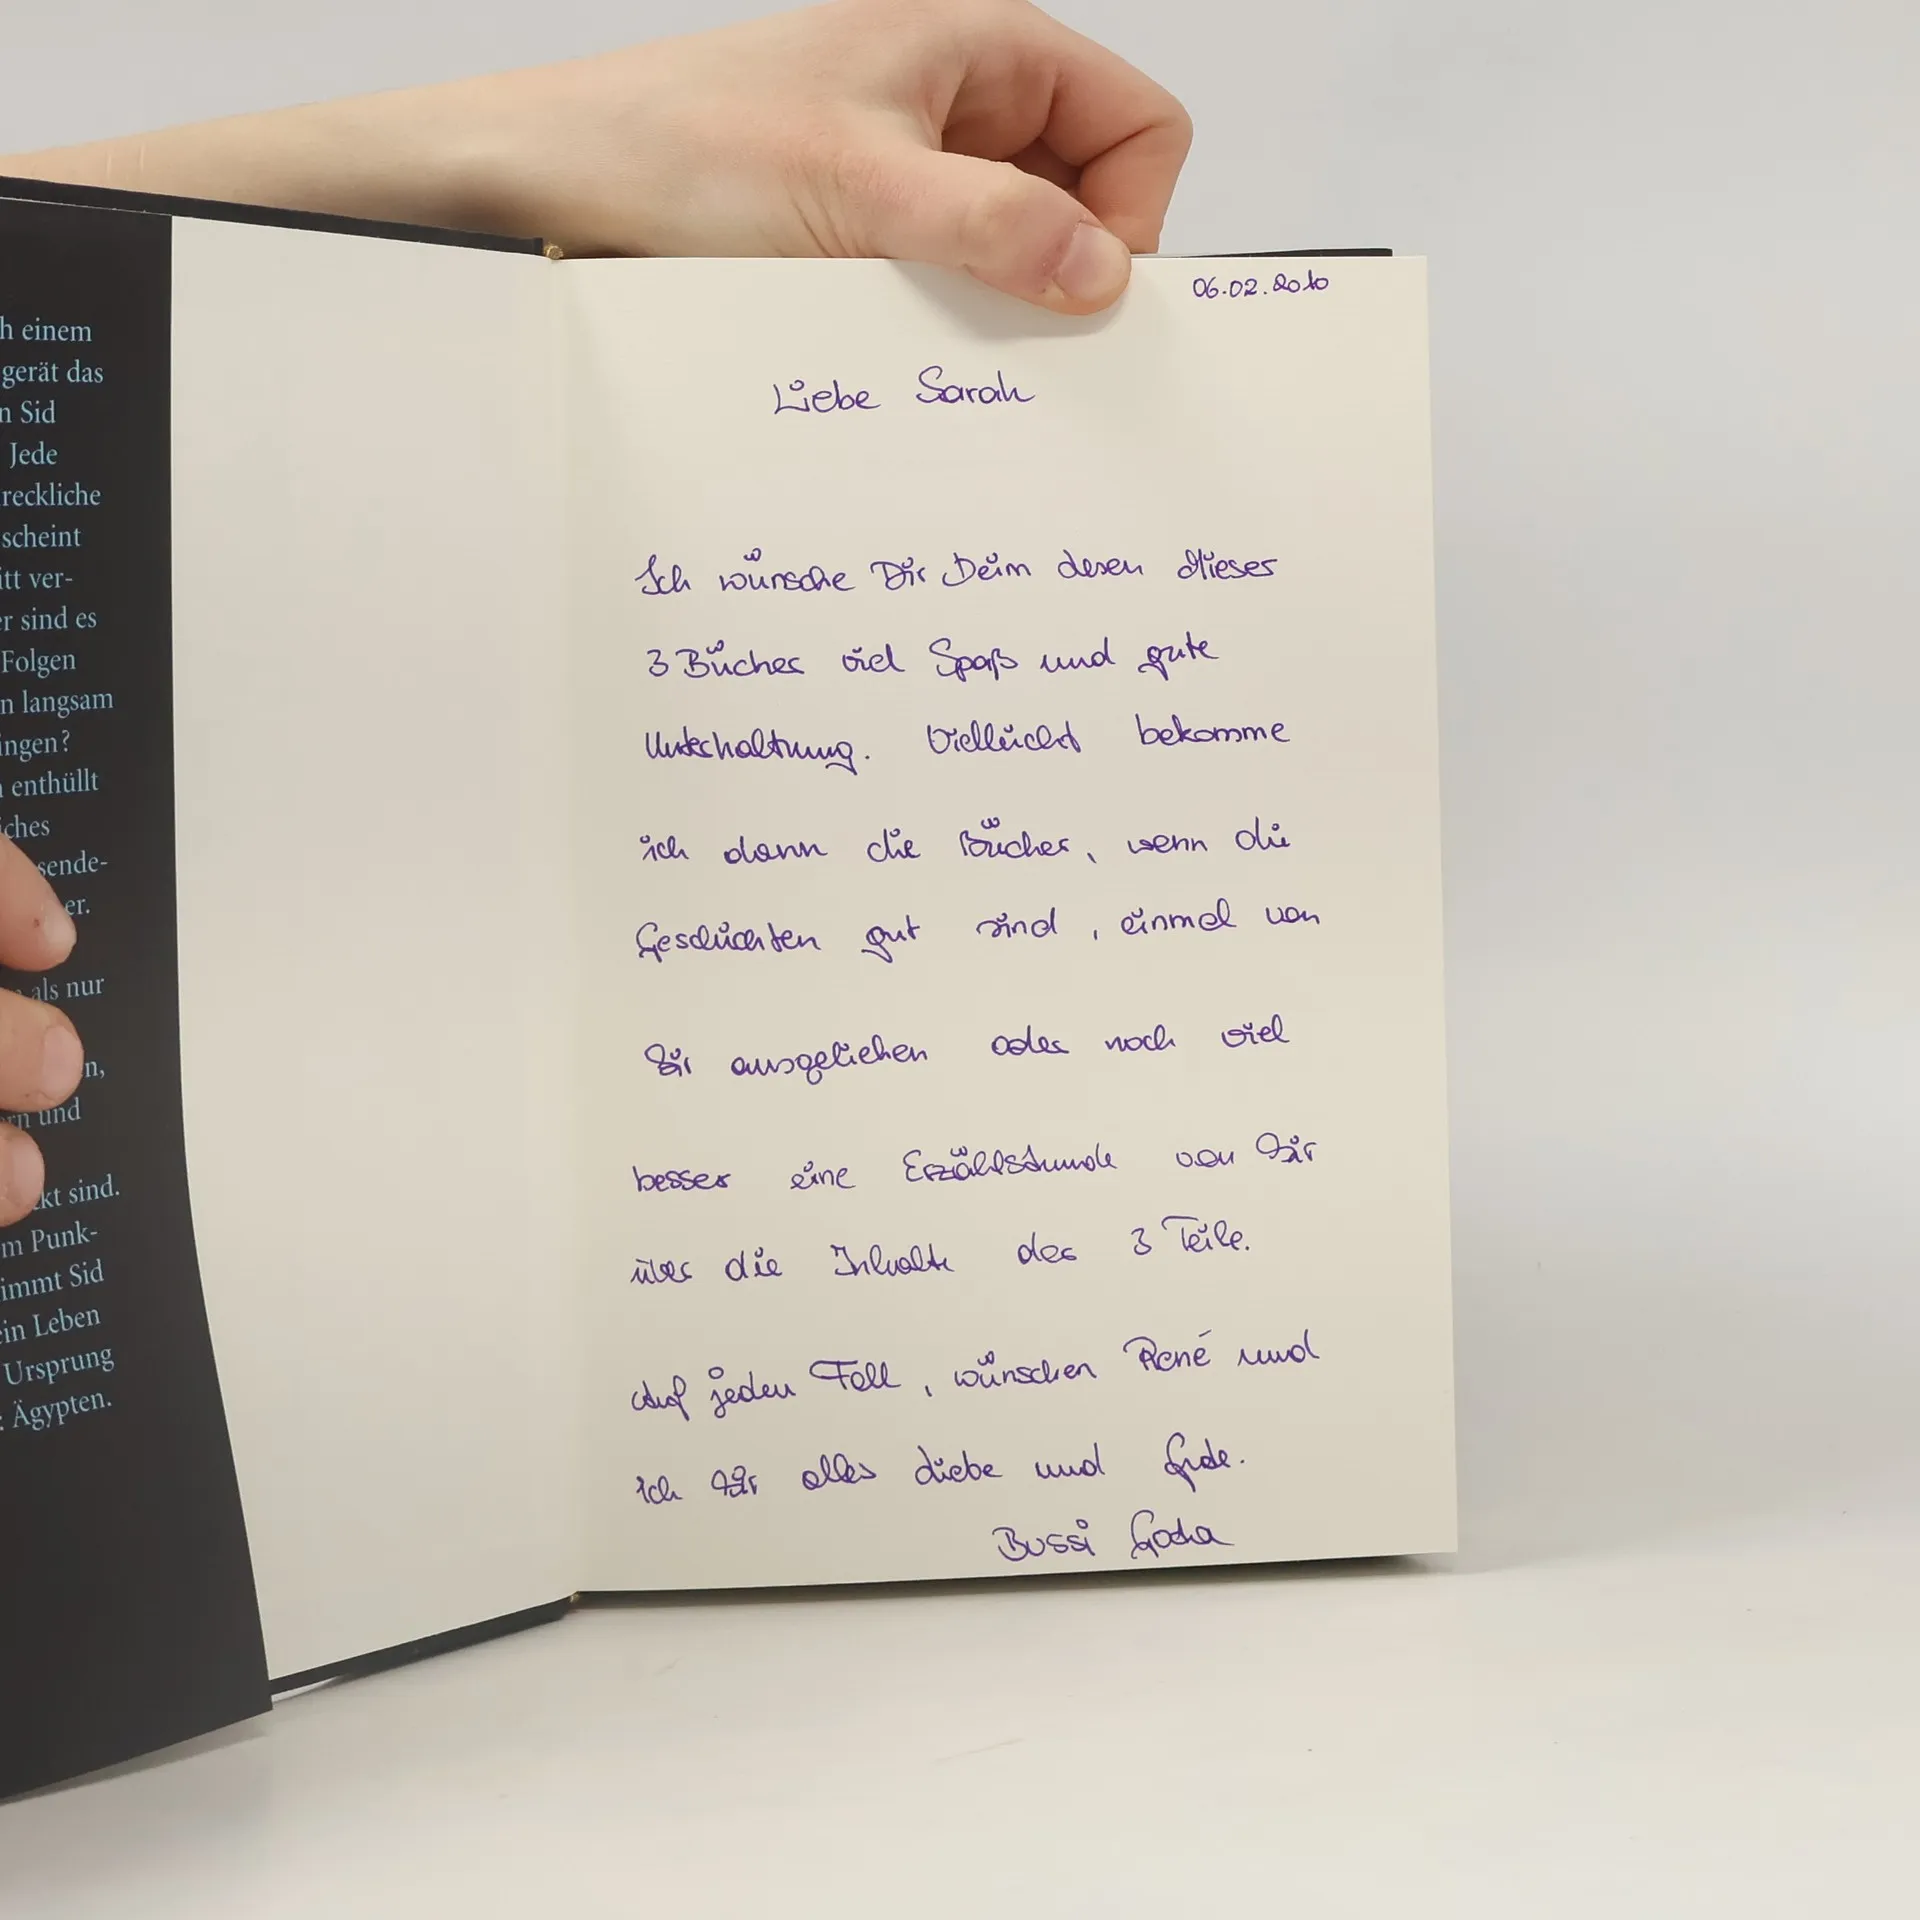 h einem
gerät das
n Sid
Jede
reckliche
scheint
itt ver-
er sind es
Folgen
n langsam
ingen?
enthüllt
iches
sende-
er.
als nur
n,
rn und
kt sind.
m Punk-
immt Sid
ein Leben
Ursprung
: Ägypten.
06.02.2010
Liebe Sarah
Ich wünsche Dir beim Lesen dieser
3 Bücher viel Spaß und gute
Unterhaltung. Vielleicht bekomme
ich dann die Bücher, wenn die
Geschichten gut sind, einmal von
Dir ausgeliehen oder noch viel
besser eine Erzählstunde von Dir
über die Inhalte der 3 Teile.
Auf jeden Fall, wünschen René und
ich Dir alles Liebe und Gute.
Bussi